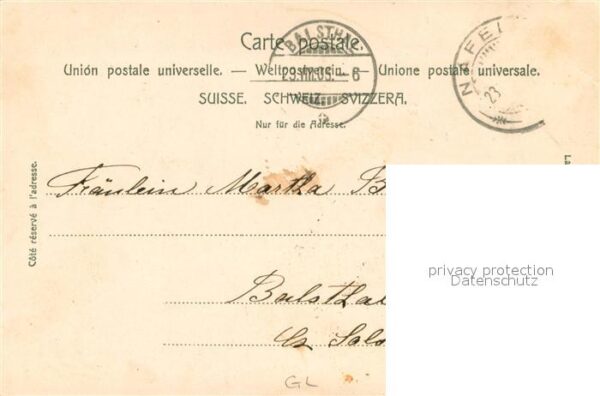 Carte postale.
Unión postale universelle. — Weltpostverein. — Unione postale universale.
SUISSE. SCHWEIZ. SVIZZERA.
Nur für die Adresse.
BALSTHAL
6
NÄFELS
23
Côté réservé à l'adresse.
Fräulein Martha
Balsthal
privacy protection
Datenschutz
GL